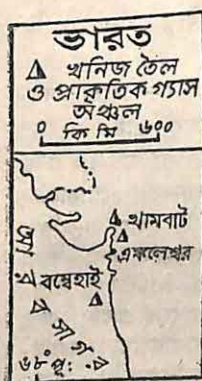 ভারত
খনিজ তৈল
ও প্রাকৃতিক গ্যাস
অঞ্চল
০ কি মি ৬০০
খামবাট
এঙ্কলেশ্বর
বম্বেহাই
আরব সাগর
৬৮° পূ: